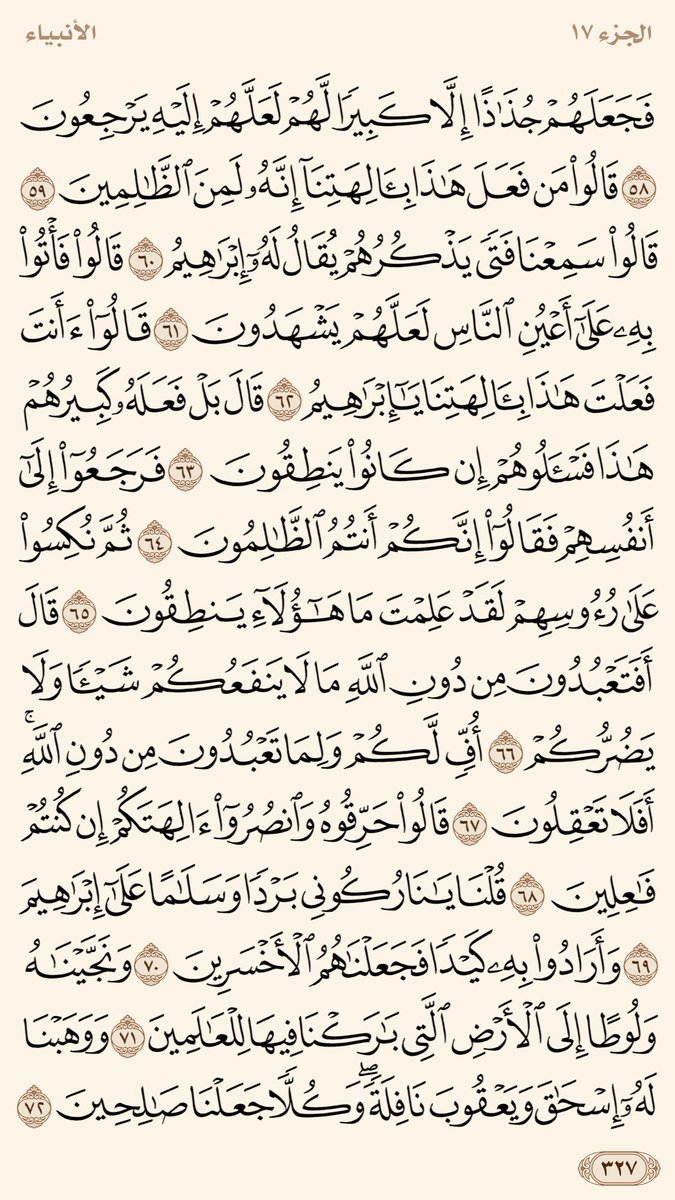 الجزء ١٧ الأنبياء
فَجَعَلَهُمْ جُذَٰذًا إِلَّا كَبِيرًا لَّهُمْ لَعَلَّهُمْ إِلَيْهِ يَرْجِعُونَ
٥٨ قَالُوا۟ مَن فَعَلَ هَٰذَا بِـَٔالِهَتِنَآ إِنَّهُۥ لَمِنَ ٱلظَّٰلِمِينَ ٥٩
قَالُوا۟ سَمِعْنَا فَتًى يَذْكُرُهُمْ يُقَالُ لَهُۥٓ إِبْرَٰهِيمُ ٦٠ قَالُوا۟ فَأْتُوا۟
بِهِۦ عَلَىٰٓ أَعْيُنِ ٱلنَّاسِ لَعَلَّهُمْ يَشْهَدُونَ ٦١ قَالُوٓا۟ ءَأَنتَ
فَعَلْتَ هَٰذَا بِـَٔالِهَتِنَا يَٰٓإِبْرَٰهِيمُ ٦٢ قَالَ بَلْ فَعَلَهُۥ كَبِيرُهُمْ
هَٰذَا فَسْـَٔلُوهُمْ إِن كَانُوا۟ يَنطِقُونَ ٦٣ فَرَجَعُوٓا۟ إِلَىٰٓ
أَنفُسِهِمْ فَقَالُوٓا۟ إِنَّكُمْ أَنتُمُ ٱلظَّٰلِمُونَ ٦٤ ثُمَّ نُكِسُوا۟
عَلَىٰ رُءُوسِهِمْ لَقَدْ عَلِمْتَ مَا هَٰٓؤُلَآءِ يَنطِقُونَ ٦٥ قَالَ
أَفَتَعْبُدُونَ مِن دُونِ ٱللَّهِ مَا لَا يَنفَعُكُمْ شَيْـًٔا وَلَا
يَضُرُّكُمْ ٦٦ أُفٍّ لَّكُمْ وَلِمَا تَعْبُدُونَ مِن دُونِ ٱللَّهِ ۚ
أَفَلَا تَعْقِلُونَ ٦٧ قَالُوا۟ حَرِّقُوهُ وَٱنصُرُوٓا۟ ءَالِهَتَكُمْ إِن كُنتُمْ
فَٰعِلِينَ ٦٨ قُلْنَا يَٰنَارُ كُونِى بَرْدًا وَسَلَٰمًا عَلَىٰٓ إِبْرَٰهِيمَ
٦٩ وَأَرَادُوا۟ بِهِۦ كَيْدًا فَجَعَلْنَٰهُمُ ٱلْأَخْسَرِينَ ٧٠ وَنَجَّيْنَٰهُ
وَلُوطًا إِلَى ٱلْأَرْضِ ٱلَّتِى بَٰرَكْنَا فِيهَا لِلْعَٰلَمِينَ ٧١ وَوَهَبْنَا
لَهُۥٓ إِسْحَٰقَ وَيَعْقُوبَ نَافِلَةً ۖ وَكُلًّا جَعَلْنَا صَٰلِحِينَ ٧٢
٣٢٧